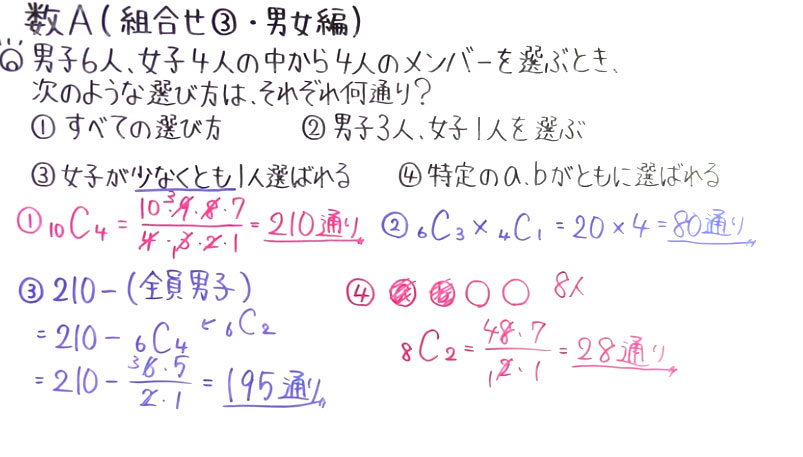 数A(組合せ③・男女編)
⑥ 男子6人、女子4人の中から4人のメンバーを選ぶとき、
次のような選び方は、それぞれ何通り?
① すべての選び方 ② 男子3人、女子1人を選ぶ
③ 女子が少なくとも1人選ばれる ④ 特定のa、bがともに選ばれる
① ₁₀C₄ = 10・9・8・7 / 4・3・2・1 = 210通り ② ₆C₃ × ₄C₁ = 20 × 4 = 80通り
③ 210 - (全員男子) ④ 8人
= 210 - ₆C₄ ← ₆C₂
₈C₂ = 8・7 / 2・1 = 28通り
= 210 - 6・5 / 2・1 = 195通り